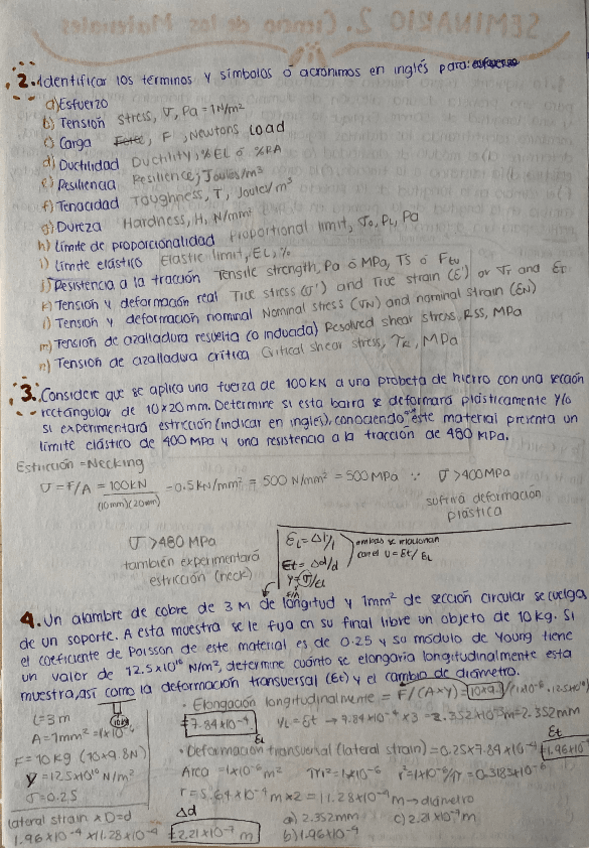 SEMINARIO 2. Ciencia de los Materiales
2. Identificar los términos y símbolos ó acrónimos en inglés para: esfuerzo
a) Esfuerzo
b) Tensión Stress, σ, Pa = 1N/m²
c) Carga Force, F, Newtons Load
d) Ductilidad Ductility, %EL ó %RA
e) Resiliencia Resilience, Joules/m³
f) Tenacidad Toughness, T, Joules/m³
g) Dureza Hardness, H, N/mm²
h) Límite de proporcionalidad Proportional limit, σo, PL, Pa
i) Límite elástico Elastic limit, EL, %
j) Resistencia a la tracción Tensile strength, Pa ó MPa, TS ó Ftu
k) Tensión y deformación real True stress (σ') and True strain (ε') or σT and εT
l) Tensión y deformación nominal Nominal stress (σN) and nominal strain (εN)
m) Tensión de azalladura resuelta (o inducida) Resolved shear stress, RSS, MPa
n) Tensión de azalladura crítica Critical shear stress, τR, MPa
3. Considere que se aplica una fuerza de 100KN a una probeta de hierro con una sección
rectángular de 10x20mm. Determine si esta barra se deformará plásticamente y/o
si experimentará estricción (indicar en inglés), conociendo este material presenta un
límite elástico de 400 MPa y una resistencia a la tracción de 480 MPa.
Estricción = Necking
σ = F/A = 100KN / (10mm)(20mm) = 0.5 kN/mm² = 500 N/mm² = 500 MPa ∵ σ > 400MPa
sufrirá deformación
plástica
σ > 480 MPa
también experimentará
estricción (neck)
εL = Δl/l
εt = Δd/d
y = σ/εL
F/A
ambas se relacionan
con el υ = εt/εL
4. Un alambre de cobre de 3 M de longitud y 1mm² de sección circular se cuelga
de un soporte. A esta muestra se le fija en su final libre un objeto de 10 kg. Si
el coeficiente de Poisson de este material es de 0.25 y su módulo de Young tiene
un valor de 12.5x10¹⁰ N/m², determine cuánto se elongaría longitudinalmente esta
muestra, así como la deformación transversal (εt) y el cambio de diámetro.
L = 3 m
A = 1mm² = 1x10⁻⁶
F = 10 kg (10x9.8N)
y = 12.5x10¹⁰ N/m²
σ = 0.25
10kg
• Elongación longitudinalmente = F/(Axy) = (10x9.8)/(1x10⁻⁶ · 12.5x10¹⁰)
7.84x10⁻⁴ εL → 7.84x10⁻⁴ x 3 = 2.352x10⁻³m = 2.352mm
• Deformación transversal (lateral strain) = 0.25x7.84x10⁻⁴ = 1.96x10⁻⁴ εt
Area = 1x10⁻⁶ m² πr² = 1x10⁻⁶ r² = 1x10⁻⁶/π = 0.3183x10⁻⁶
r = 5.64x10⁻⁴ m x2 = 11.28x10⁻⁴ m → diámetro
lateral strain x D = d
1.96x10⁻⁴ x 11.28x10⁻⁴
Δd
2.21x10⁻⁷ m
a) 2.352mm c) 2.21x10⁻⁷m
b) 1.96x10⁻⁴